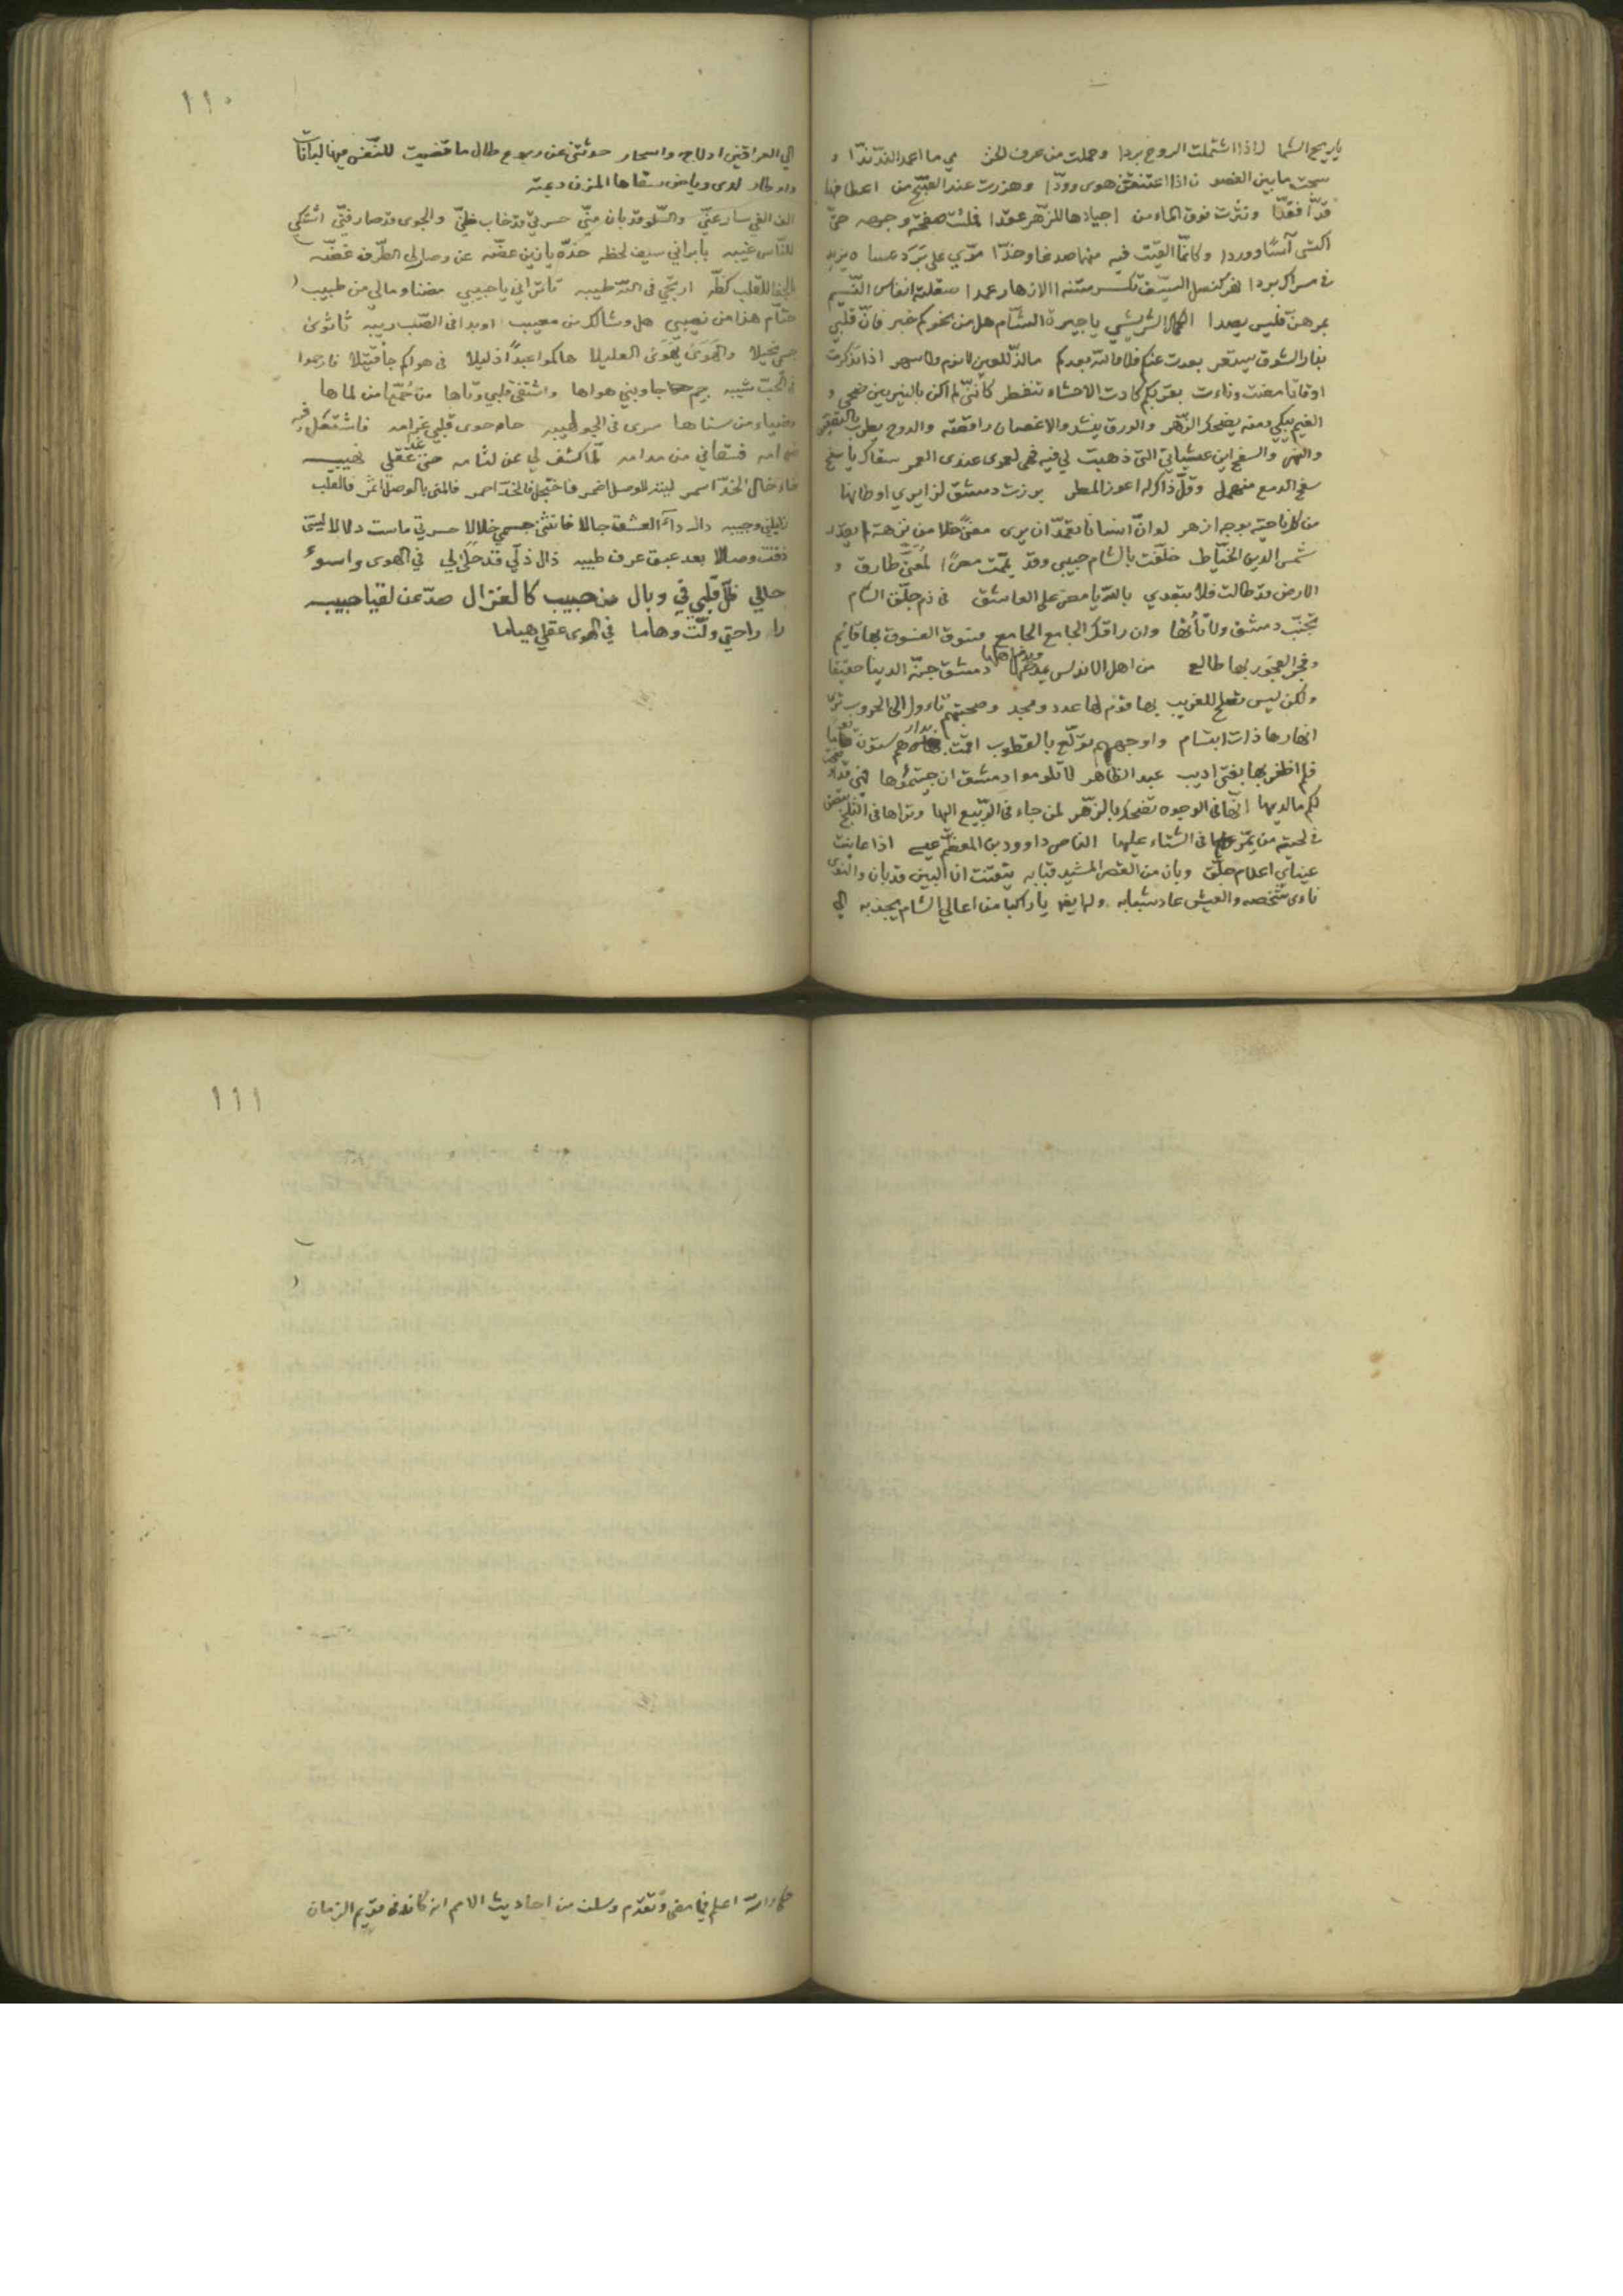 ياريح الشما لاذا اشتملت الروض بردا وحملت من عرف الخز مي ما اعد الند ندا و
سجت ما بين الغصو ن اذا اعتنقن هوى وودّا وهززت عند الصبح من اعطافها
قدّا فقدّا ونثرت فوق الماء من اجيادها للزهر عقدا فملئت صفحة وجهه حتّى
اكتسى آسًا ووردا وكانّما القيت فيه منها صدغا وخدّا مرّي على بردى عساه يزيد
في مسراك بردا نهر كنصل السيف تكسر متنه الازهار عمدا صقلته انفاس النسيم
بمرهنّ فليس يصدا الكمال الشريشي يا جيرة الشام هل من نحوكم خبر فانّ قلبي
بنار الشوق يستعر بعدت عنكم فلا والله بعدكم ما لذّ للعين لا نوم ولا سهر اذا تذكرت
اوقاتا مضت وناءت بقربكم كادت الاحشاء تنفطر كأنني لم اكن بالنيربين ضحى و
الغيم يبكي ومنه يضحك الزهر والورق ينشد والاغصان راقصة والدوح يطرب بالتصفيق
والنهر والسفح اين عشياتي التي ذهبت لي فيه فهي لعمرى عندى العمر سقاك يا سفح
سفح الدمع منهمل وقلّ ذاك له اعوز المطر برزت دمشق لزايري اوطانها
من كل ناحية بوجه ازهر لو انّ انسانا تعمّد ان يرى مغنى خلا من نزهة لم يقدر
شمس الدين الخياط خلّفت بالشام حبيبى وقد يمّمت مصرًا لمعنى طارق و
الارض قد طالت فلا تبعدي بالله يا مصر على العاشق في ذم جلّق الشام
تجنّب دمشق ولا تأتها وان راقك الجامع الجامع فسوق الفسوق بها قايم
وفجر الفجور بها طالع من اهل الاندلس دمشق جنّة الدنيا حقيقا
ولكن ليس تصلح للغريب بها قوم لها عدد ومجد وصحبتهم تاءول الى الحروب ترى
انهارها ذات ابتسام واوجههم تولّع بالقطوب اقمت بدارهم ستون يوما
فلم اظفر بها بفتى اديب عبد الظاهر لا تلوموا دمشق ان جئتموها فهي قد اوضحت
لكم ما لديها انّها في الوجوه تضحك بالزهر لمن جاء في الربيع اليها وتراها في الثلج تبصق
في لحية من يمرّ في الشتاء عليها الناصر داوود بن المعظم عيسى اذا عاينت
عيناي اعلام جلّق وبان من القصر المشيد قبابه تيقنت ان البين قد بان والنوى
ناءى شخصه والعيش عاد شبابه وله ايضا يا راكبا من اعالي الشام يجذبه الى
١١٠
الى العراقين ادلاج واسحار حدثتني عن ربوع طال ما قضيت للنفس فيها لبانات
واوطار لدى رياض سقاها المزن ديمته
الف الفي سار عنّي والسلو قد بان منّي حسرتي قد خاب ظنّي والجوى قد صار فنّي اشتكي
للناس غيبه با براني سيف لحظه خدّه يا زين غضّه عن وصالى الطرف غضّه
بالجفا للقلب كظّه ارتجي في الله طيبه تا تراني يا حبيبي مضنا ومالي من طبيب
حتّام هذا من نصيبي هل وشا لك من معيب او بدا في الصب ريبه ثا ثوى
جسمي نحيلا والهوى يهوى العليلا هاكموا عبدًا ذليلا في هواكم جا قتيلا فارحموا
في الحبّ شيبه جيم جا وبني هواها واشتفى قلبي وتاها من لماها
وضياء من سناها سرى في الجو لهيبه حاء حوى قلبي غرامه فاشتعل فيه
ضرامه فسقاني من مدامه لمّا كشف لي عن لثامه حتى غدا عقلي نهيبه
خاء خال الخدّ اسمر ليته للوصل اضمر فاختجل فالخدّ احمر فالمنى بالوصل اثمر فالقلب
زايلني وجيبه دال داء العشق جالا فانثنى جسمي خلالا حسرتي ماست دلالا ليتني
ذقت وصالا بعد عبق عرف طيبه ذال ذلّي قد حلا لي في الهوى واسوء
حالي ظلّ قلبي في وبال من حبيب كالغزال صدّ عن لقيا حبيبه
را راحتي ولّت وهاما في الهوى عقلي هياما
١١١
حكي والله اعلم فيما مضى وتقدّم وسلف من احاديث الامم انه كان في قديم الزمان